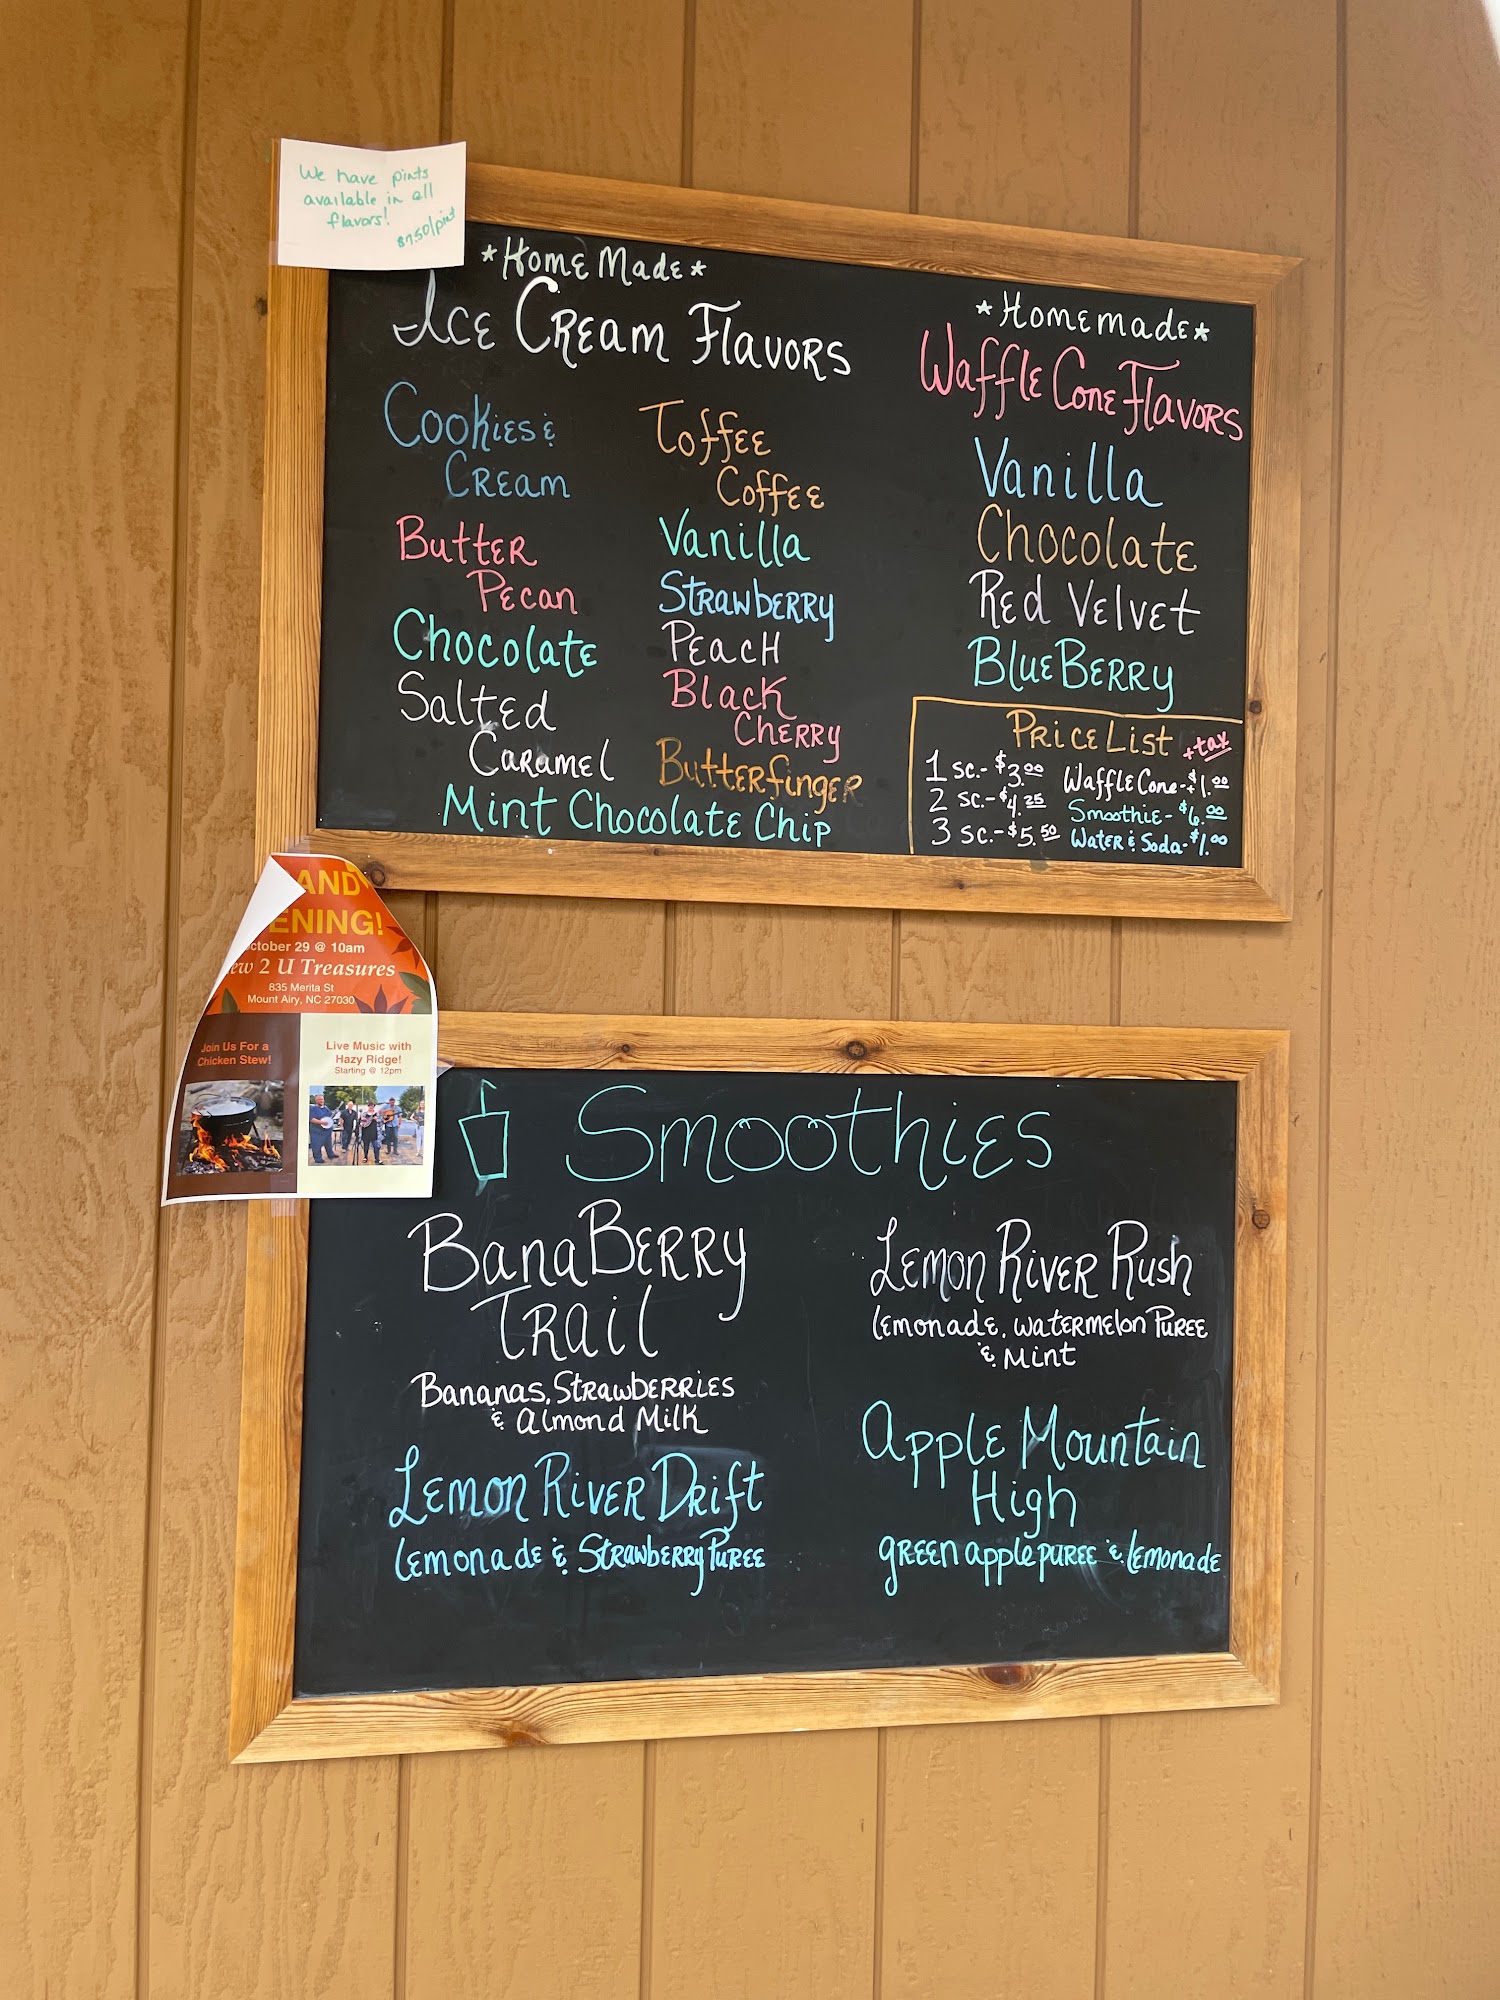 We have pints
available in all
flavors!
$7.50/pint
*Home Made*
Ice Cream Flavors
Cookies &
Cream
Butter
Pecan
Chocolate
Salted
Caramel
Toffee
Coffee
Vanilla
Strawberry
Peach
Black
Cherry
Butterfinger
Mint Chocolate Chip
*Homemade*
Waffle Cone Flavors
Vanilla
Chocolate
Red Velvet
BlueBerry
Price List +tax
1 sc.- $3.00
2 sc.- $4.25
3 sc.- $5.50
Waffle Cone-$1.00
Smoothie- $6.00
Water & Soda-$1.00
AND
ENING!
ctober 29 @ 10am
ew 2 U Treasures
835 Merita St
Mount Airy, NC 27030
Join Us For a
Chicken Stew!
Live Music with
Hazy Ridge!
Starting @ 12pm
Smoothies
BanaBerry
Trail
Bananas, Strawberries
& Almond Milk
Lemon River Drift
lemonade & Strawberry Puree
Lemon River Rush
lemonade, watermelon Puree
& Mint
Apple Mountain
High
green apple puree & lemonade